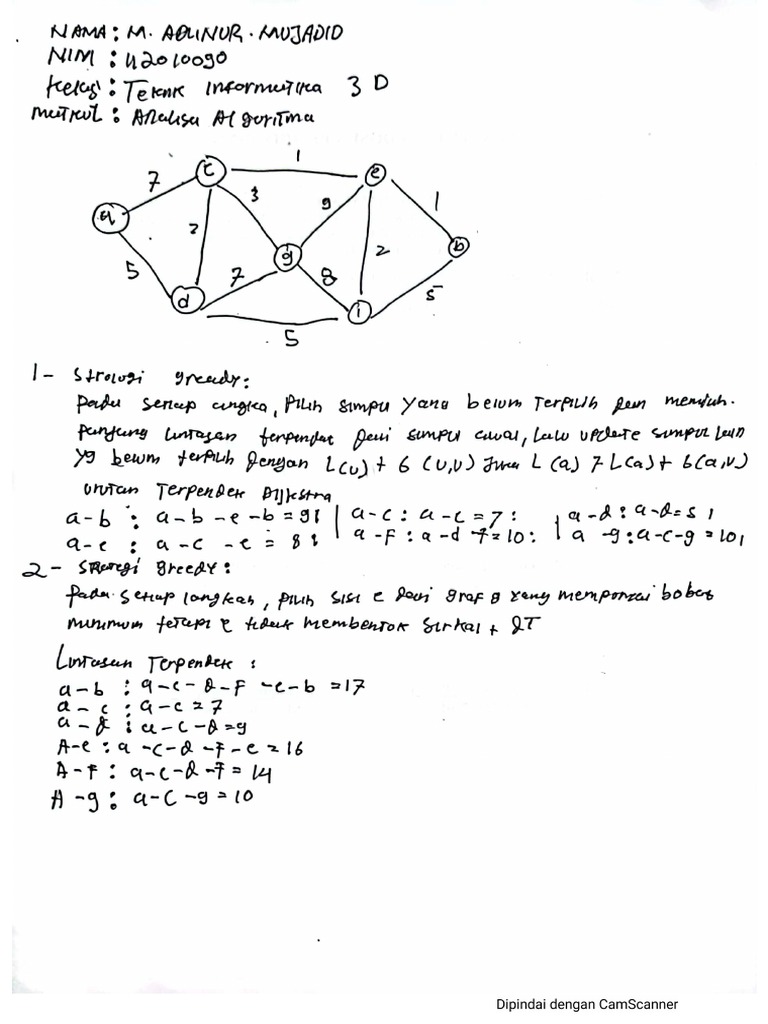 NAMA : M. ADLINUR . MUJADID
NIM : 42010090
Kelas : Teknik Informatika 3 D
matkul : Analisa Algoritma
1
7
c
e
3
9
1
a
2
g
2
b
5
7
8
d
i
5
5
1- Strategi greedy:
Pada setiap langka, Pilih simpu yang belum Terpilih dan
Panjang lintasan terpendek dari simpul awal, lalu update simpul lain
yg belum terpilih dengan L(u) + G (u,v) L(a) 7 L(a) + G(a,v)
Terpendek
a-b : a-b-e-b = 9: a-c : a-c = 7 : a-d : a-d = 5
a-e : a-c-e = 8 : a-F : a-d-f = 10 : a-g : a-c-g = 10
2- Strategi greedy :
Pada setiap langkah, pilih sisi e dari graf g yang mempunyai bobot
minimum tetapi e tidak membentuk + QT
Lintasan Terpendek :
a-b : a-c-d-F-e-b = 17
a-c : a-c = 7
a-d : a-c-d = 9
A-e : a-c-d-f-e = 16
A-f : a-c-d-f = 14
A-g : a-c-g = 10
Dipindai dengan CamScanner